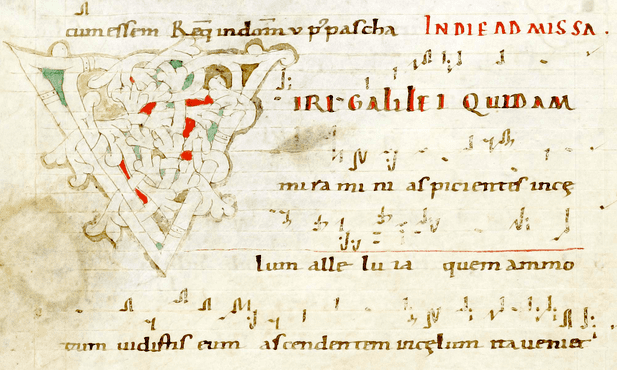 cum essem Req in dom̄ v p' pascha IN DIE AD MISSA.
VIRI GALILEI QUIDAM
miramini aspicientes incę
lum alleluia quem ammo
dum uidistis eum ascendentem incęlum ita ueniet